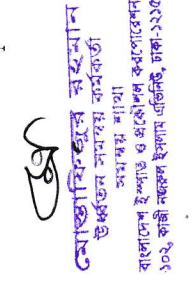 মোস্তাফিজুর রহমান
উর্ধ্বতন সমন্বয় কর্মকর্তা
সমন্বয় শাখা
বাংলাদেশ ইস্পাত ও প্রকৌশল করপোরেশন
১০২, কাজী নজরুল ইসলাম এভিনিউ, ঢাকা-১২১৫